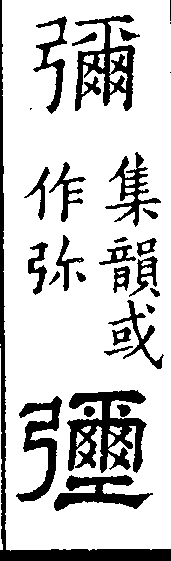 彌
集韻或
作弥